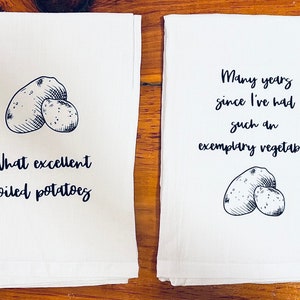 What excellent
boiled potatoes
Many years
since I've had
such an
exemplary vegetable